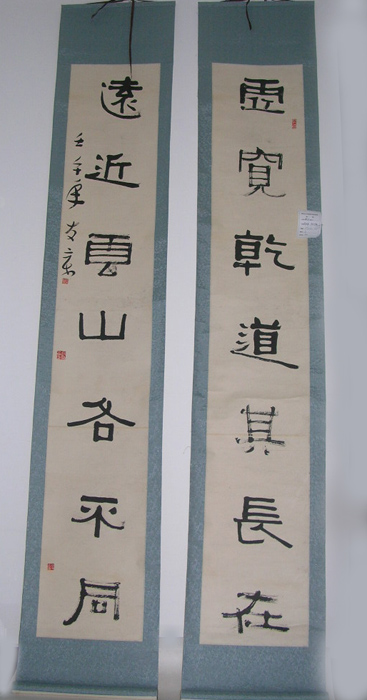 虛寬乾道其長在
遠近雲山各不同
壬午